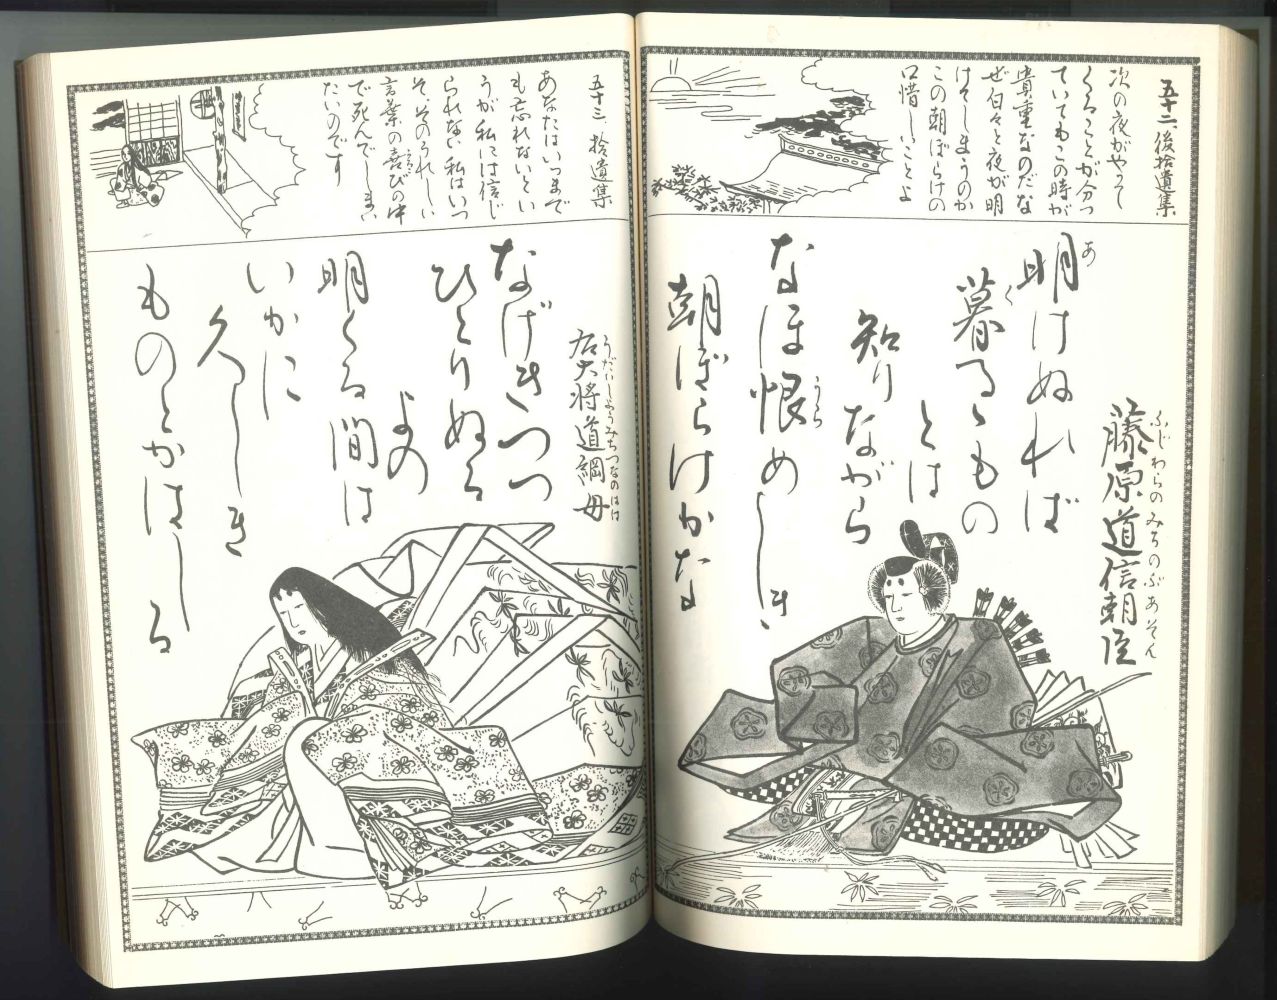 五十二、後拾遺集
次の夜がやって
くることが分っ
ていてもこの時が
貴重なのだな
ぜ白々と夜が明
けてしまうのか
この朝ぼらけの
口惜しいことよ
藤原道信朝臣
ふじわらのみちのぶあそん
明けぬれば
あ
暮るゝもの
く
とは
知りながら
なほ恨めしき
うら
朝ぼらけかな
五十三、拾遺集
あなたはいつまで
も忘れないとい
うが私には信じ
られない私はいつ
そ、そのうれしい
言葉の喜びの中
で死んでしまい
たいのです
右大将道綱母
うだいしょうみちつなのはは
なげきつつ
ひとりぬる
よの
明くる間は
いかに
久しき
ものとかはしる